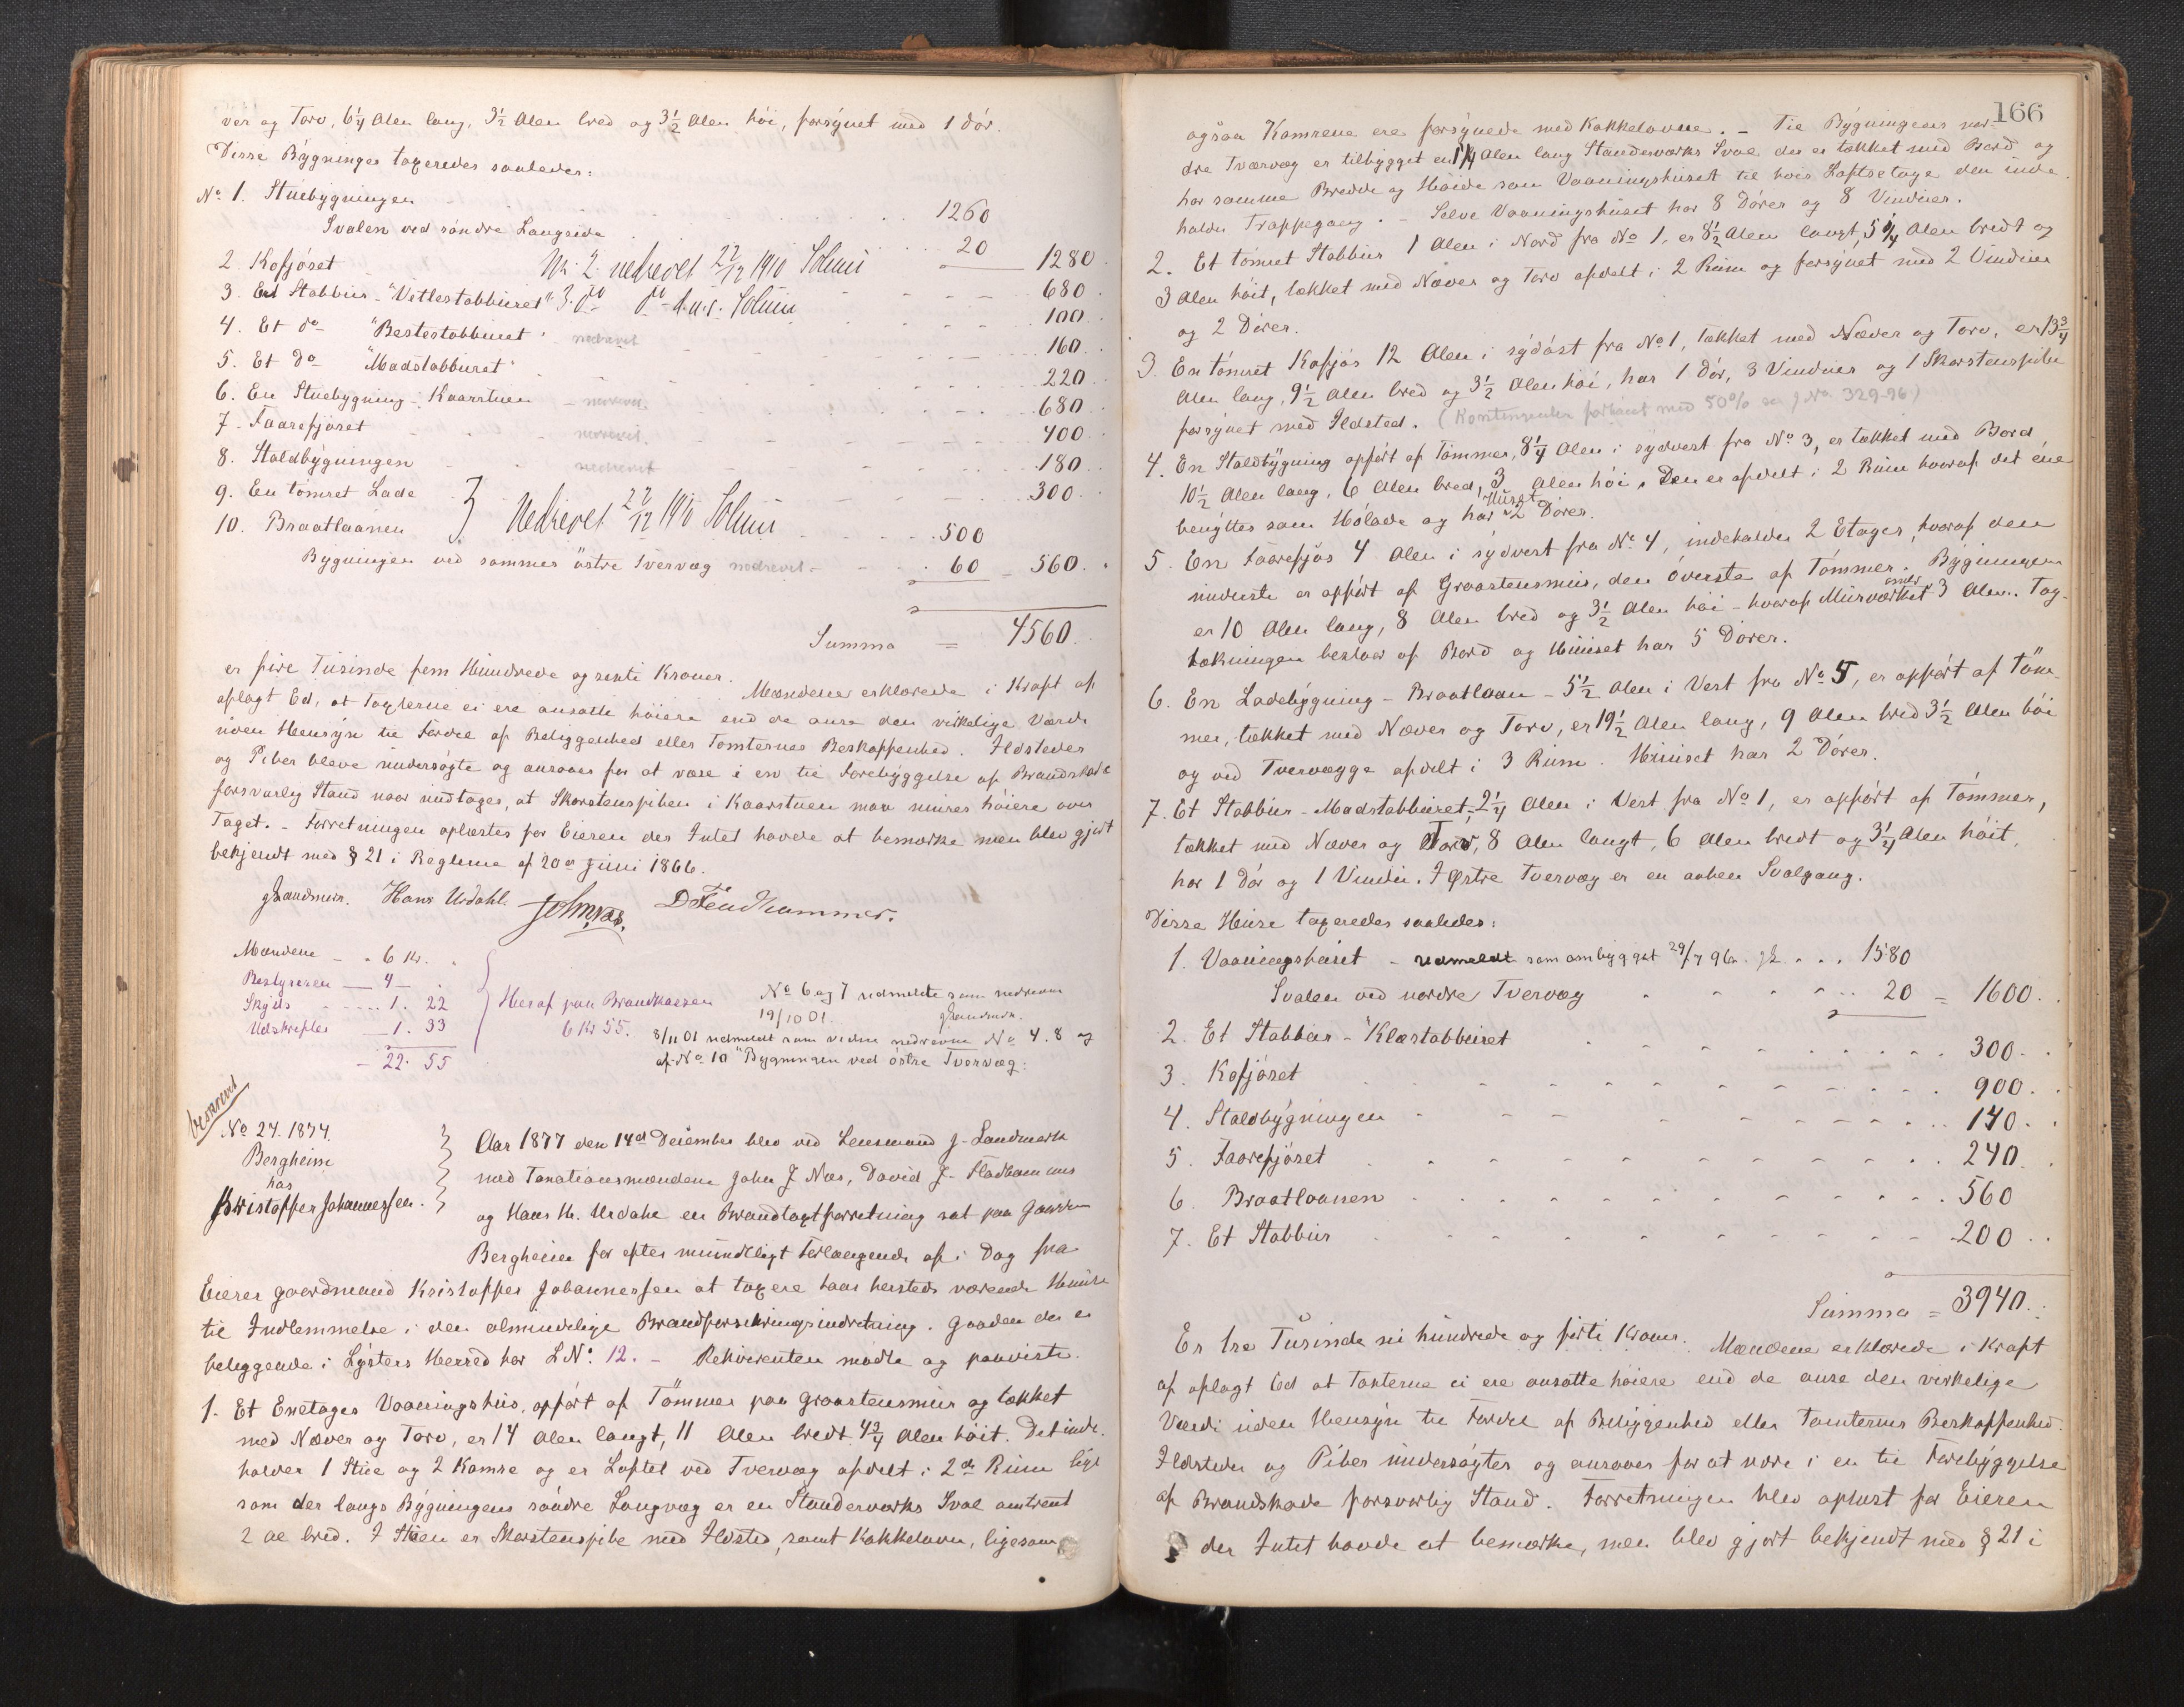 ver og Torv, 6 1/4 Alen lang, 3 1/2 Alen bred og 3 1/2 Alen høi, forsynet med 1 Dør.
Disse Bygninger taxeredes saaledes:
No 1. Stuebygningen 1260
Svalen ved søndre Langside 20 1280.
2. Kofjøset Nr. 2 nedrevet 22/12 1910 Solum 680.
3. Et Stabbur - "Vetlestabburet" 3. do do d.u.s. Solum 100.
4. Et do "Bestestabburet" nedrevet 160.
5. Et do "Madstabburet" 220.
6. En Stuebygning - Kaarstuen nedrevet 680.
7. Faarefjøset nedrevet 400.
8. Staldbygningen nedrevet 180.
9. En tømret Lade 300.
10. Braatlaanen } Nedrevet 22/12 1910 Solum 500
Bygningen ved sammes østre Tvervæg nedrevet 60 560.
Summa = 4560.
er fire Tusinde fem Hundrede og sexti Kroner. Mændene erklærede i Kraft af
aflagt Ed, at Taxterne ei ere ansatte høiere end de anse den virkelige Værdi
uden Hensyn til Fordel af Beliggenhed eller Tomternes Beskaffenhed. Ildsteder
og Piber bleve undersøgte og ansaaes for at være i en til Forebyggelse af Brandskade
forsvarlig Stand naar undtages, at Skorstenspiben i Kaarstuen maa mures høiere over
Taget. - Forretningen oplæstes for Eieren der Intet havde at bemærke men blev gjort
bekjendt med § 21 i Reglerne af 20de Juni 1866.
JLandmrk. Hans Urdahl. JohnNæs. D Fladhammer.
Mændene - 6 Kr.
Bestyreren - 4 -
Skyds - 1. 22
Udskrifter - 1. 33
- 22. 55
Heraf paa Brandkassen
6 Kr 55.
No 6 og 7 udmeldte som nedrevne
19/10 01. JLandmrk.
8/11 01 udmeldt som videre nedrevne No 4. 8 og
af No 10 "Bygningen ved østre Tvervæg.
beskrevet
No 24. 1877.
Bergheim
hos
Kristoffer Johannessen.
Aar 1877 den 14de December blev ved Lensmand J. Landmark
med Taxationsmændene John J Næs, David J. Fladhammer
og Hans H. Urdahl en Brandtaxtforretning sat paa Gaarden
Bergheim for efter mundtligt Forlangende af i Dag fra
Eieren Gaardmand Kristoffer Johannessen at taxere hans hersteds værende Huse
til Indlemmelse i den almindelige Brandforsikringsindretning. Gaarden der er
beliggende i Lysters Herred har LNo. 12. - Rekvirenten mødte og paaviste.
1. Et Enetages Vaaningshus, opført af Tømmer paa Graastensmur og tækket
med Næver og Torv, er 14 Alen langt, 11 Alen bredt 4 3/4 Alen høit. Det inde-
holder 1 Stue og 2 Kamre og er Loftet ved Tvervæg afdelt i 2de Rum lige
som der langs Bygningens søndre Langvæg er en Standerværks Sval omtrent
2 Al bred. I Stuen er Skorstenspibe med Ildsted, samt Kakkelovn, ligesom
166
ogsaa Kamrene ere forsynede med Kakkelovne. - Til Bygningens nor-
dre Tværvæg er tilbygget en 1 1/4 Alen lang Standerværks Sval der er tækket med Bord og
har samme Bredde og Høide som Vaaningshuset til hvis Loftsetage den inde-
holder Trappegang. - Selve Vaaningshuset har 8 Dører og 8 Vinduer.
2. Et tømret Stabbur 1 Alen i Nord fra No 1, er 8 1/2 Alen langt, 5 1/4 Alen bredt og
3 Alen høit, tækket med Næver og Torv afdelt i 2 Rum og forsynet med 2 Vinduer
og 2 Dører.
3. En tømret Kofjøs 12 Alen i sydøst fra No 1, tækket med Næver og Torv, er 13 3/4
Alen lang, 9 1/2 Alen bred og 3 1/2 Alen høi, har 1 Dør, 3 Vinduer og 1 Skorstenspibe
forsynet med Ildsted. (Kontingenten forhøiet med 50% se J No 329-96)
4. En Staldbygning opført af Tømmer, 8 1/4 Alen i sydvest fra No 3, er tækket med Bord
10 1/2 Alen lang, 6 Alen bred, 3 Alen høi. Den er afdelt i 2 Rum hvoraf det ene
benyttes som Hølade og har Huset 2 Dører.
5. En Faarefjøs 4 Alen i sydvest fra No 4, indeholder 2 Etager, hvoraf den
nederste er opført af Graastensmur, den øverste af Tømmer. Bygningen
er 10 Alen lang, 8 Alen bred og 3 1/2 Alen høi - hvoraf Murværket omtr 3 Alen. Tag-
tækningen bestaar af Bord og Huset har 5 Dører.
6. En Ladebygning - Braatlaan - 5 1/2 Alen i Vest fra No 5, er opført af Tøm-
mer, tækket med Næver og Torv, er 19 1/2 Alen lang, 9 Alen bred 3 1/2 Alen høi
og ved Tvervægge afdelt i 3 Rum. Huset har 2 Dører.
7. Et Stabbur - Madstabburet, 2 1/4 Alen i Vest fra No 1, er opført af Tømmer,
tækket med Næver og Torv, 8 Alen langt, 6 Alen bredt og 3 1/4 Alen høit,
har 1 Dør og 1 Vindu. I Østre Tvervæg er en aaben Svalgang.
Disse Huse taxeredes saaledes:
1. Vaaningshuset - udmeldt som ombygget 29/7 96. JL. 1580
Svalen ved nordre Tvervæg 20 = 1600.
2. Et Stabbur - "Klæstabburet 300.
3. Kofjøset 900.
4. Staldbygningen 140.
5. Faarefjøset 240.
6. Braatlaanen 560
7. Et Stabbur 200
Summa = 3940.
Er tre Tusinde ni hundrede og firti Kroner. Mændene erklærede i Kraft
af aflagt Ed at Taxterne ei ere ansatte høiere end de anse den virkelige
Værdi uden Hensyn til Fordel af Beliggenhed eller Tomternes Beskaffenhed.
Ildsteder og Piber undersøgtes og ansaaes for at være i en til Forebyggelse
af Brandskade forsvarlig Stand. Forretningen blev oplæst for Eieren
der Intet havde at bemærke, men blev gjort bekjendt med § 21 i